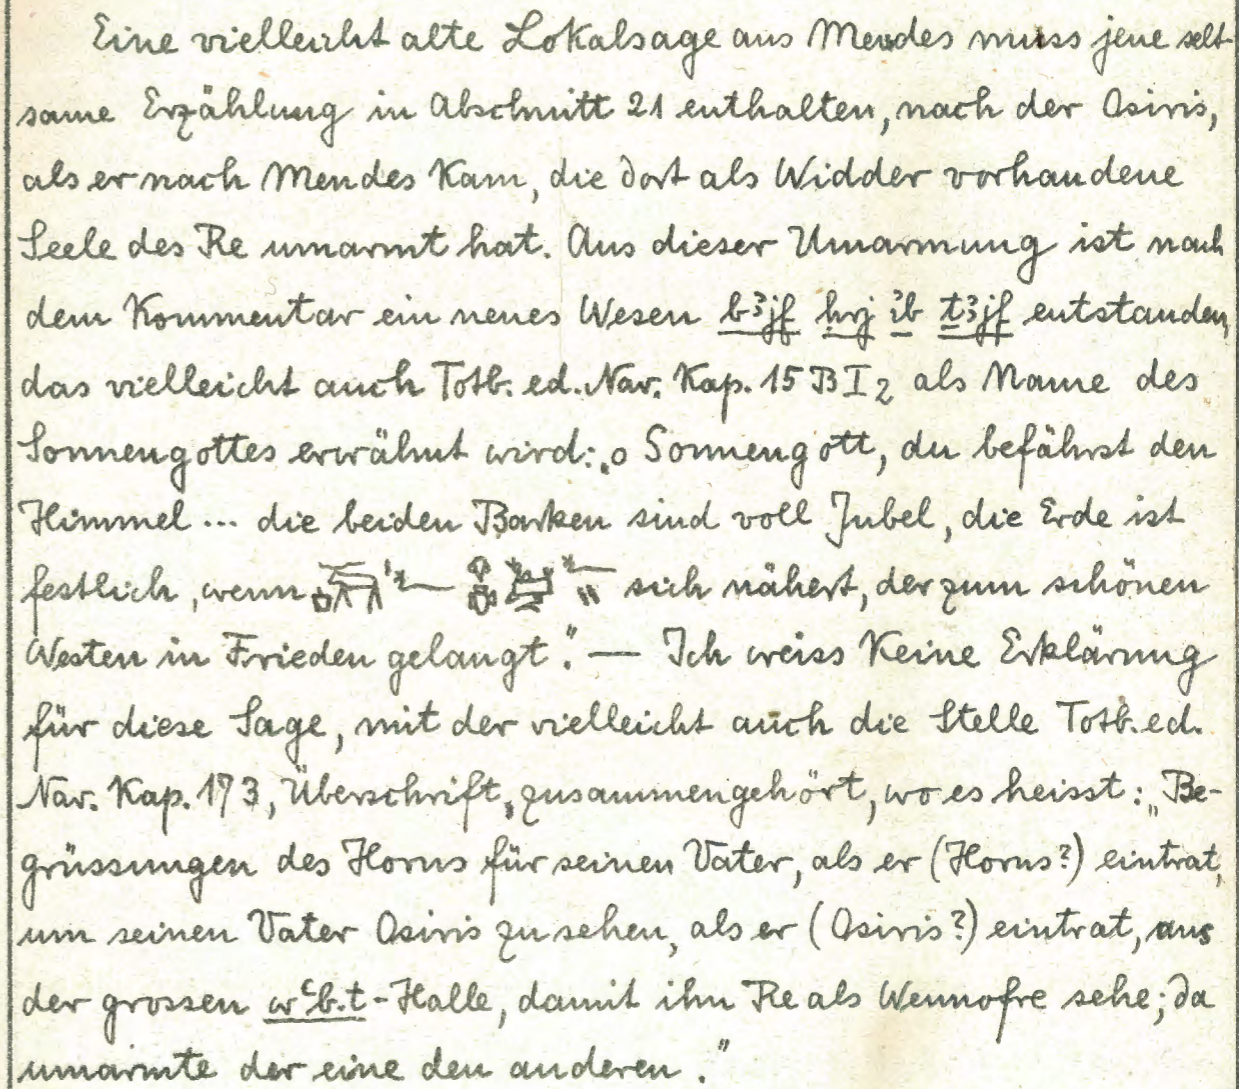 Eine vielleicht alte Lokalsage aus Mendes muss jene selt-
same Erzählung in Abschnitt 21 enthalten, nach der Osiris,
als er nach Mendes kam, die dort als Widder vorhandene
Seele des Re umarmt hat. Aus dieser Umarmung ist nach
dem Kommentar ein neues Wesen bꜣjf ḥrj ỉb ṯꜣjf entstanden,
das vielleicht auch Totb. ed. Nav. Kap. 15 B I 2 als Name des
Sonnengottes erwähnt wird: „o Sonnengott, du befährst den
Himmel ... die beiden Barken sind voll Jubel, die Erde ist
festlich, wenn sich nähert, der zum schönen
Westen in Frieden gelangt." — Ich weiss keine Erklärung
für diese Sage, mit der vielleicht auch die Stelle Totb. ed.
Nav. Kap. 173, Überschrift, zusammengehört, wo es heisst: „Be-
grüssungen des Horus für seinen Vater, als er (Horus?) eintrat,
um seinen Vater Osiris zu sehen, als er (Osiris?) eintrat, aus
der grossen wꜥb.t-Halle, damit ihn Re als Wennofre sehe; da
umarmte der eine den anderen."